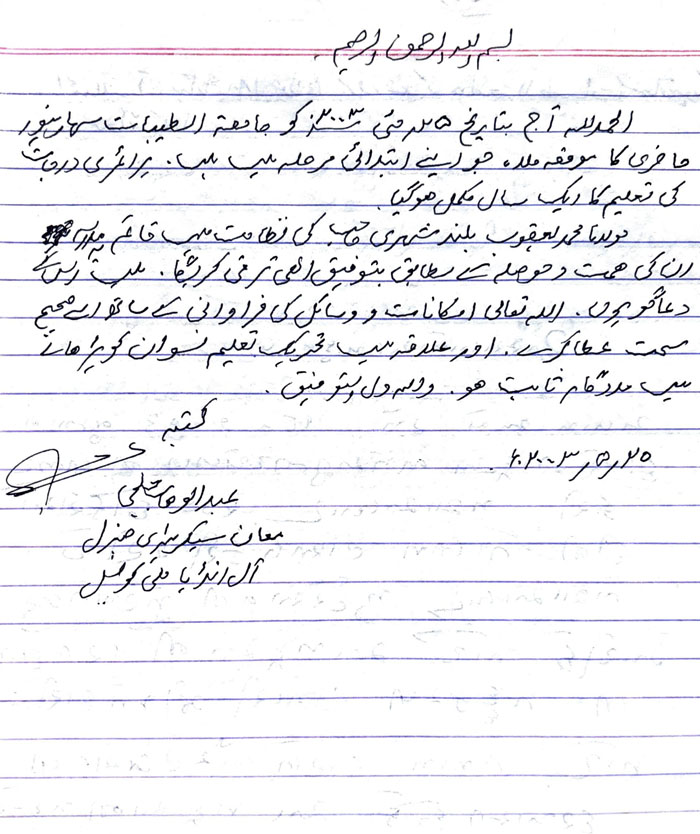 بسم اللہ الرحمن الرحیم
الحمدللہ آج بتاریخ ۲۵؍ مئی ۲۰۰۳ء کو جامعۃ الطیبات سہارنپور
حاضری کا موقعہ ملا، جو اپنے ابتدائی مرحلہ میں ہے۔ پرائمری درجات
کی تعلیم کا ایک سال مکمل ہوگیا۔
مولانا محمد یعقوب بلند شہری صاحب کی نظامت میں قائم مدرسہ
ان کی ہمت و حوصلہ کے مطابق بتوفیق الٰہی ترقی کریگا۔ میں اس کے
دعاگو ہوں۔ اللہ تعالی امکانات و وسائل کی فراوانی کے ساتھ اسے صحیح
سمت عطا کرے۔ اور علاقہ میں تحریک تعلیم نسواں کو بڑھانے
میں مددگار ثابت ہو۔ واللہ ولی التوفیق۔
کتبہ
۲۵؍۵؍۲۰۰۳ء
عبدالوہاب خلجی
معاون سیکریٹری جنرل
آل انڈیا ملی کونسل